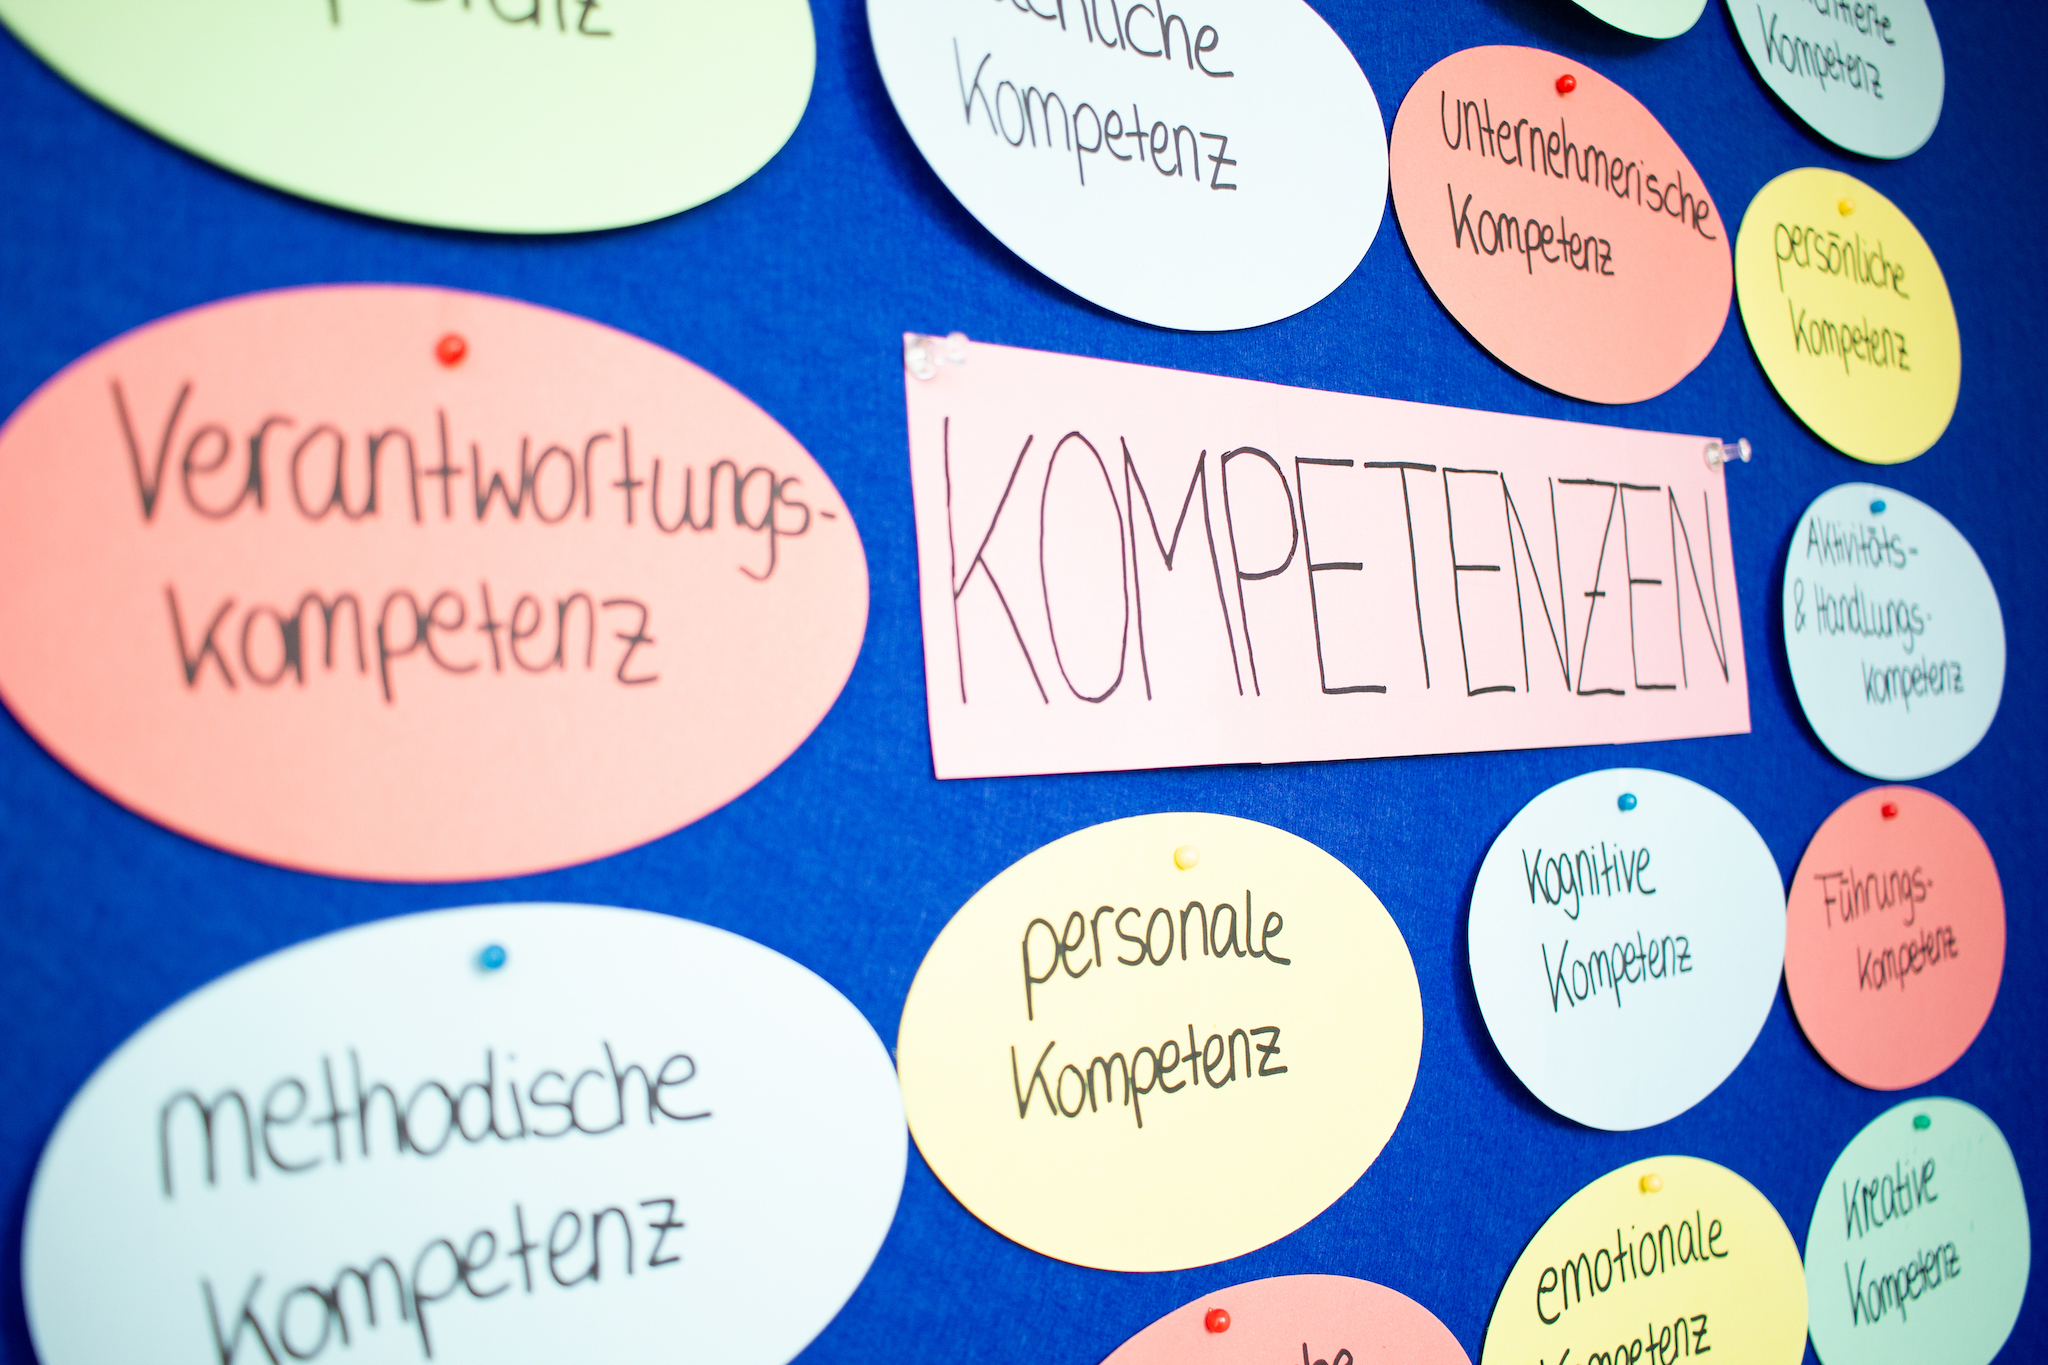 Kompetenz
unternehmerische
Kompetenz
Kompetenz
persönliche
Kompetenz
Verantwortungs-
kompetenz
KOMPETENZEN
Aktivitäts-
& Handlungs-
kompetenz
methodische
Kompetenz
personale
Kompetenz
Kognitive
Kompetenz
Führungs-
kompetenz
emotionale
Kompetenz
Kreative
Kompetenz